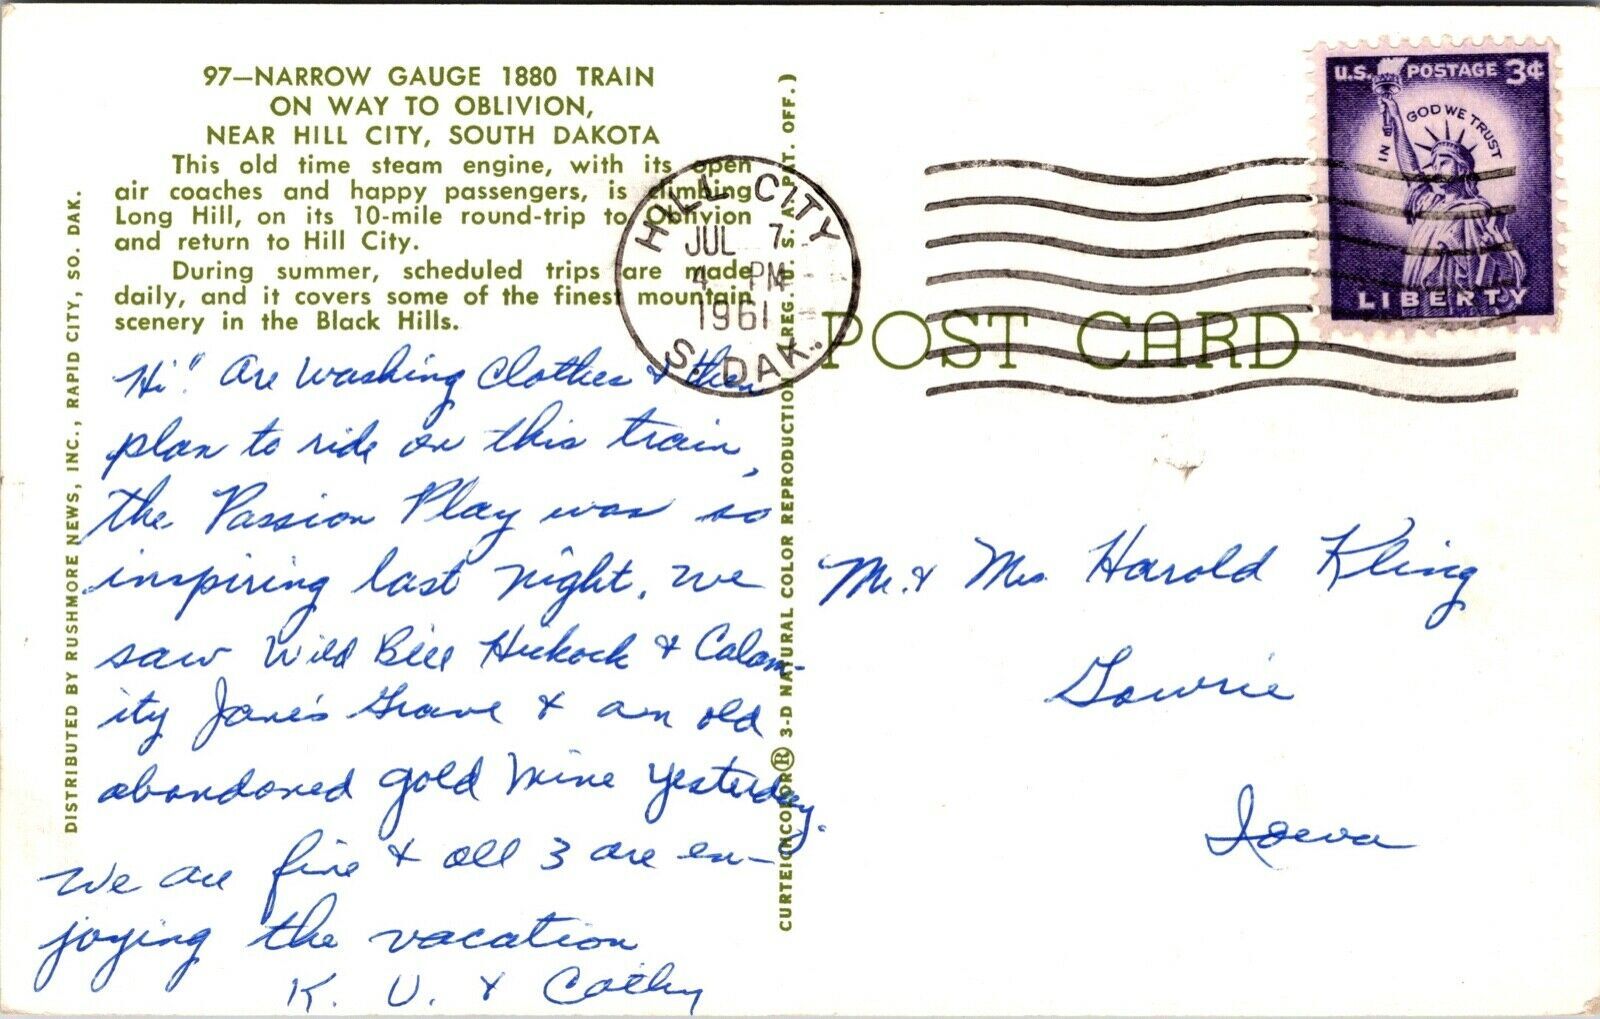 97—NARROW GAUGE 1880 TRAIN
ON WAY TO OBLIVION,
NEAR HILL CITY, SOUTH DAKOTA
This old time steam engine, with its open
air coaches and happy passengers, is climbing
Long Hill, on its 10-mile round-trip to Oblivion
and return to Hill City.
During summer, scheduled trips are made
daily, and it covers some of the finest mountain
scenery in the Black Hills.
DISTRIBUTED BY RUSHMORE NEWS, INC., RAPID CITY, SO. DAK.
CURTEICHCOLOR® 3-D NATURAL COLOR REPRODUCTION (REG. U. S. A. PAT. OFF.)
POST CARD
HILL CITY
JUL 7
4 PM
1961
S. DAK.
U.S. POSTAGE 3¢
IN GOD WE TRUST
LIBERTY
"Hi" Are washing clothes & then
plan to ride on this train,
the Passion Play was so
inspiring last night. We
saw Wild Bill Hickock & Calam-
ity Jane's Grave & an old
abandoned gold mine yesterday.
We are fine & all 3 are en-
joying the vacation
K. U. & Cathy
Mr. & Mrs. Harold Kling
Gowrie
Iowa